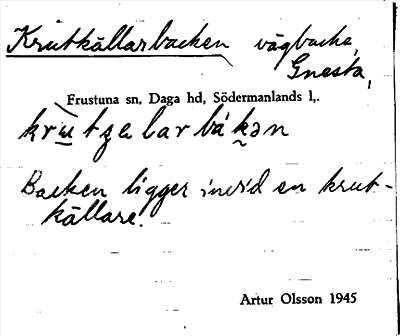 Krutkällarbacken vägbacke,
Gnesta,
Frustuna sn, Daga hd, Södermanlands l,.
Backen ligger invid en krut-
källare.
Artur Olsson 1945